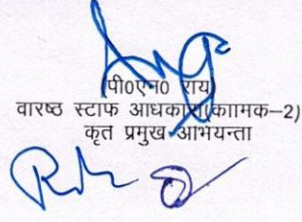 (पी०एन० राय)
वारष्ठ स्टाफ आधकारी(काामक–2)
कृत प्रमुख आभयन्ता